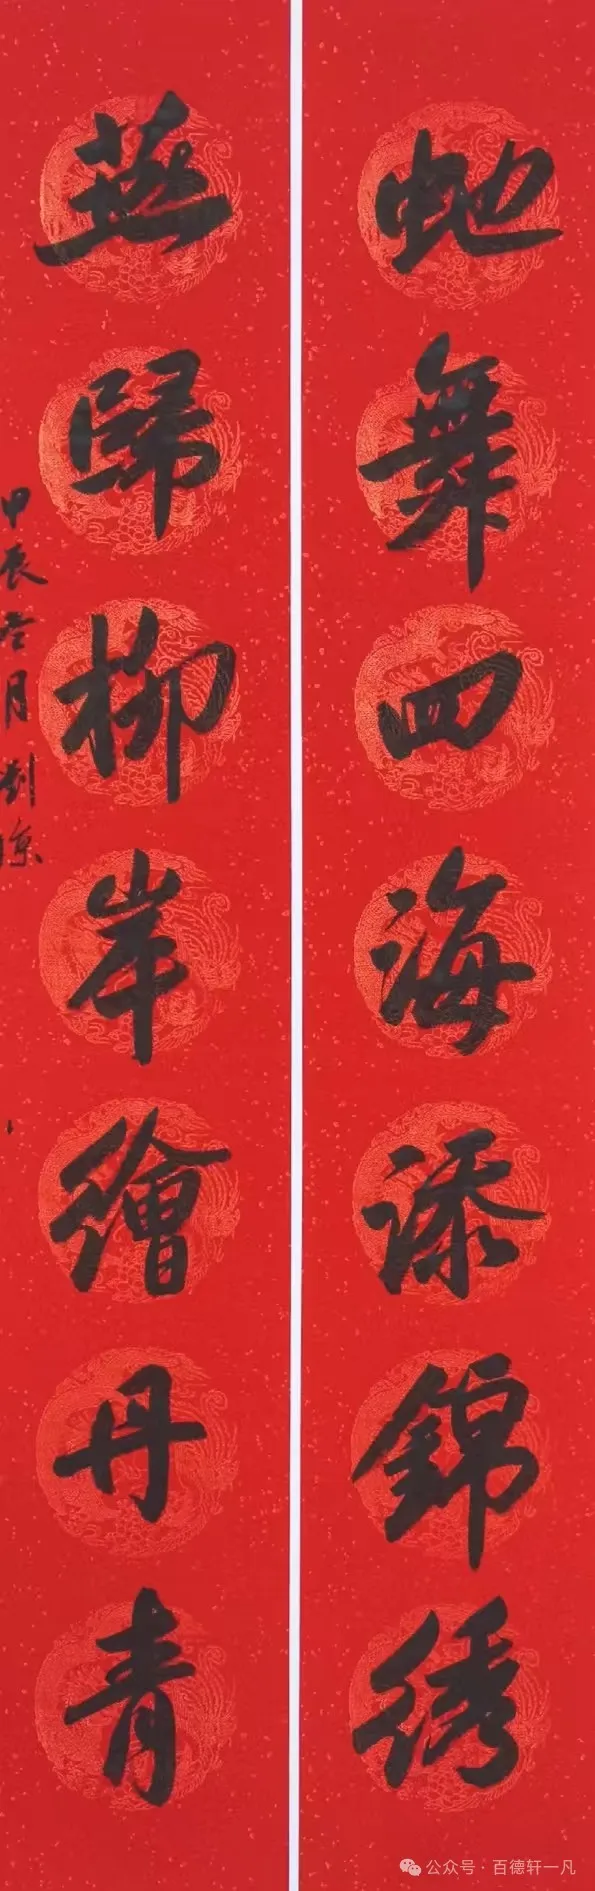 虵舞四海添錦綉
燕歸柳岸繪丹青
甲辰冬月劉
公众号·百德轩一凡